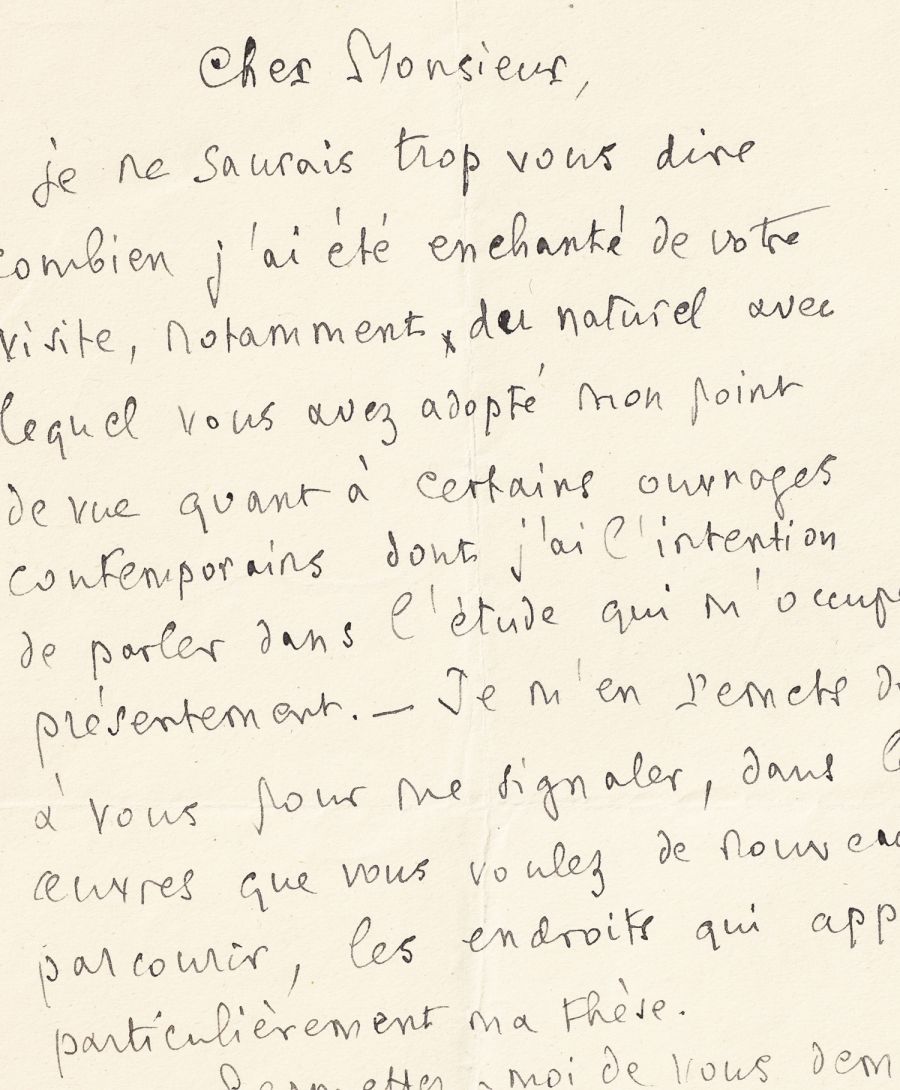 Cher Monsieur,
je ne saurais trop vous dire
combien j'ai été enchanté de votre
visite, notamment du naturel avec
lequel vous avez adopté mon point
de vue quant à certains ouvrages
contemporains dont j'ai l'intention
de parler dans l'étude qui m'occupe
présentement. — Je m'en remets
à vous pour me signaler, dans
œuvres que vous voulez de nouveau
parcourir, les endroits qui app
particulièrement ma thèse.
Permettez-moi de vous dem